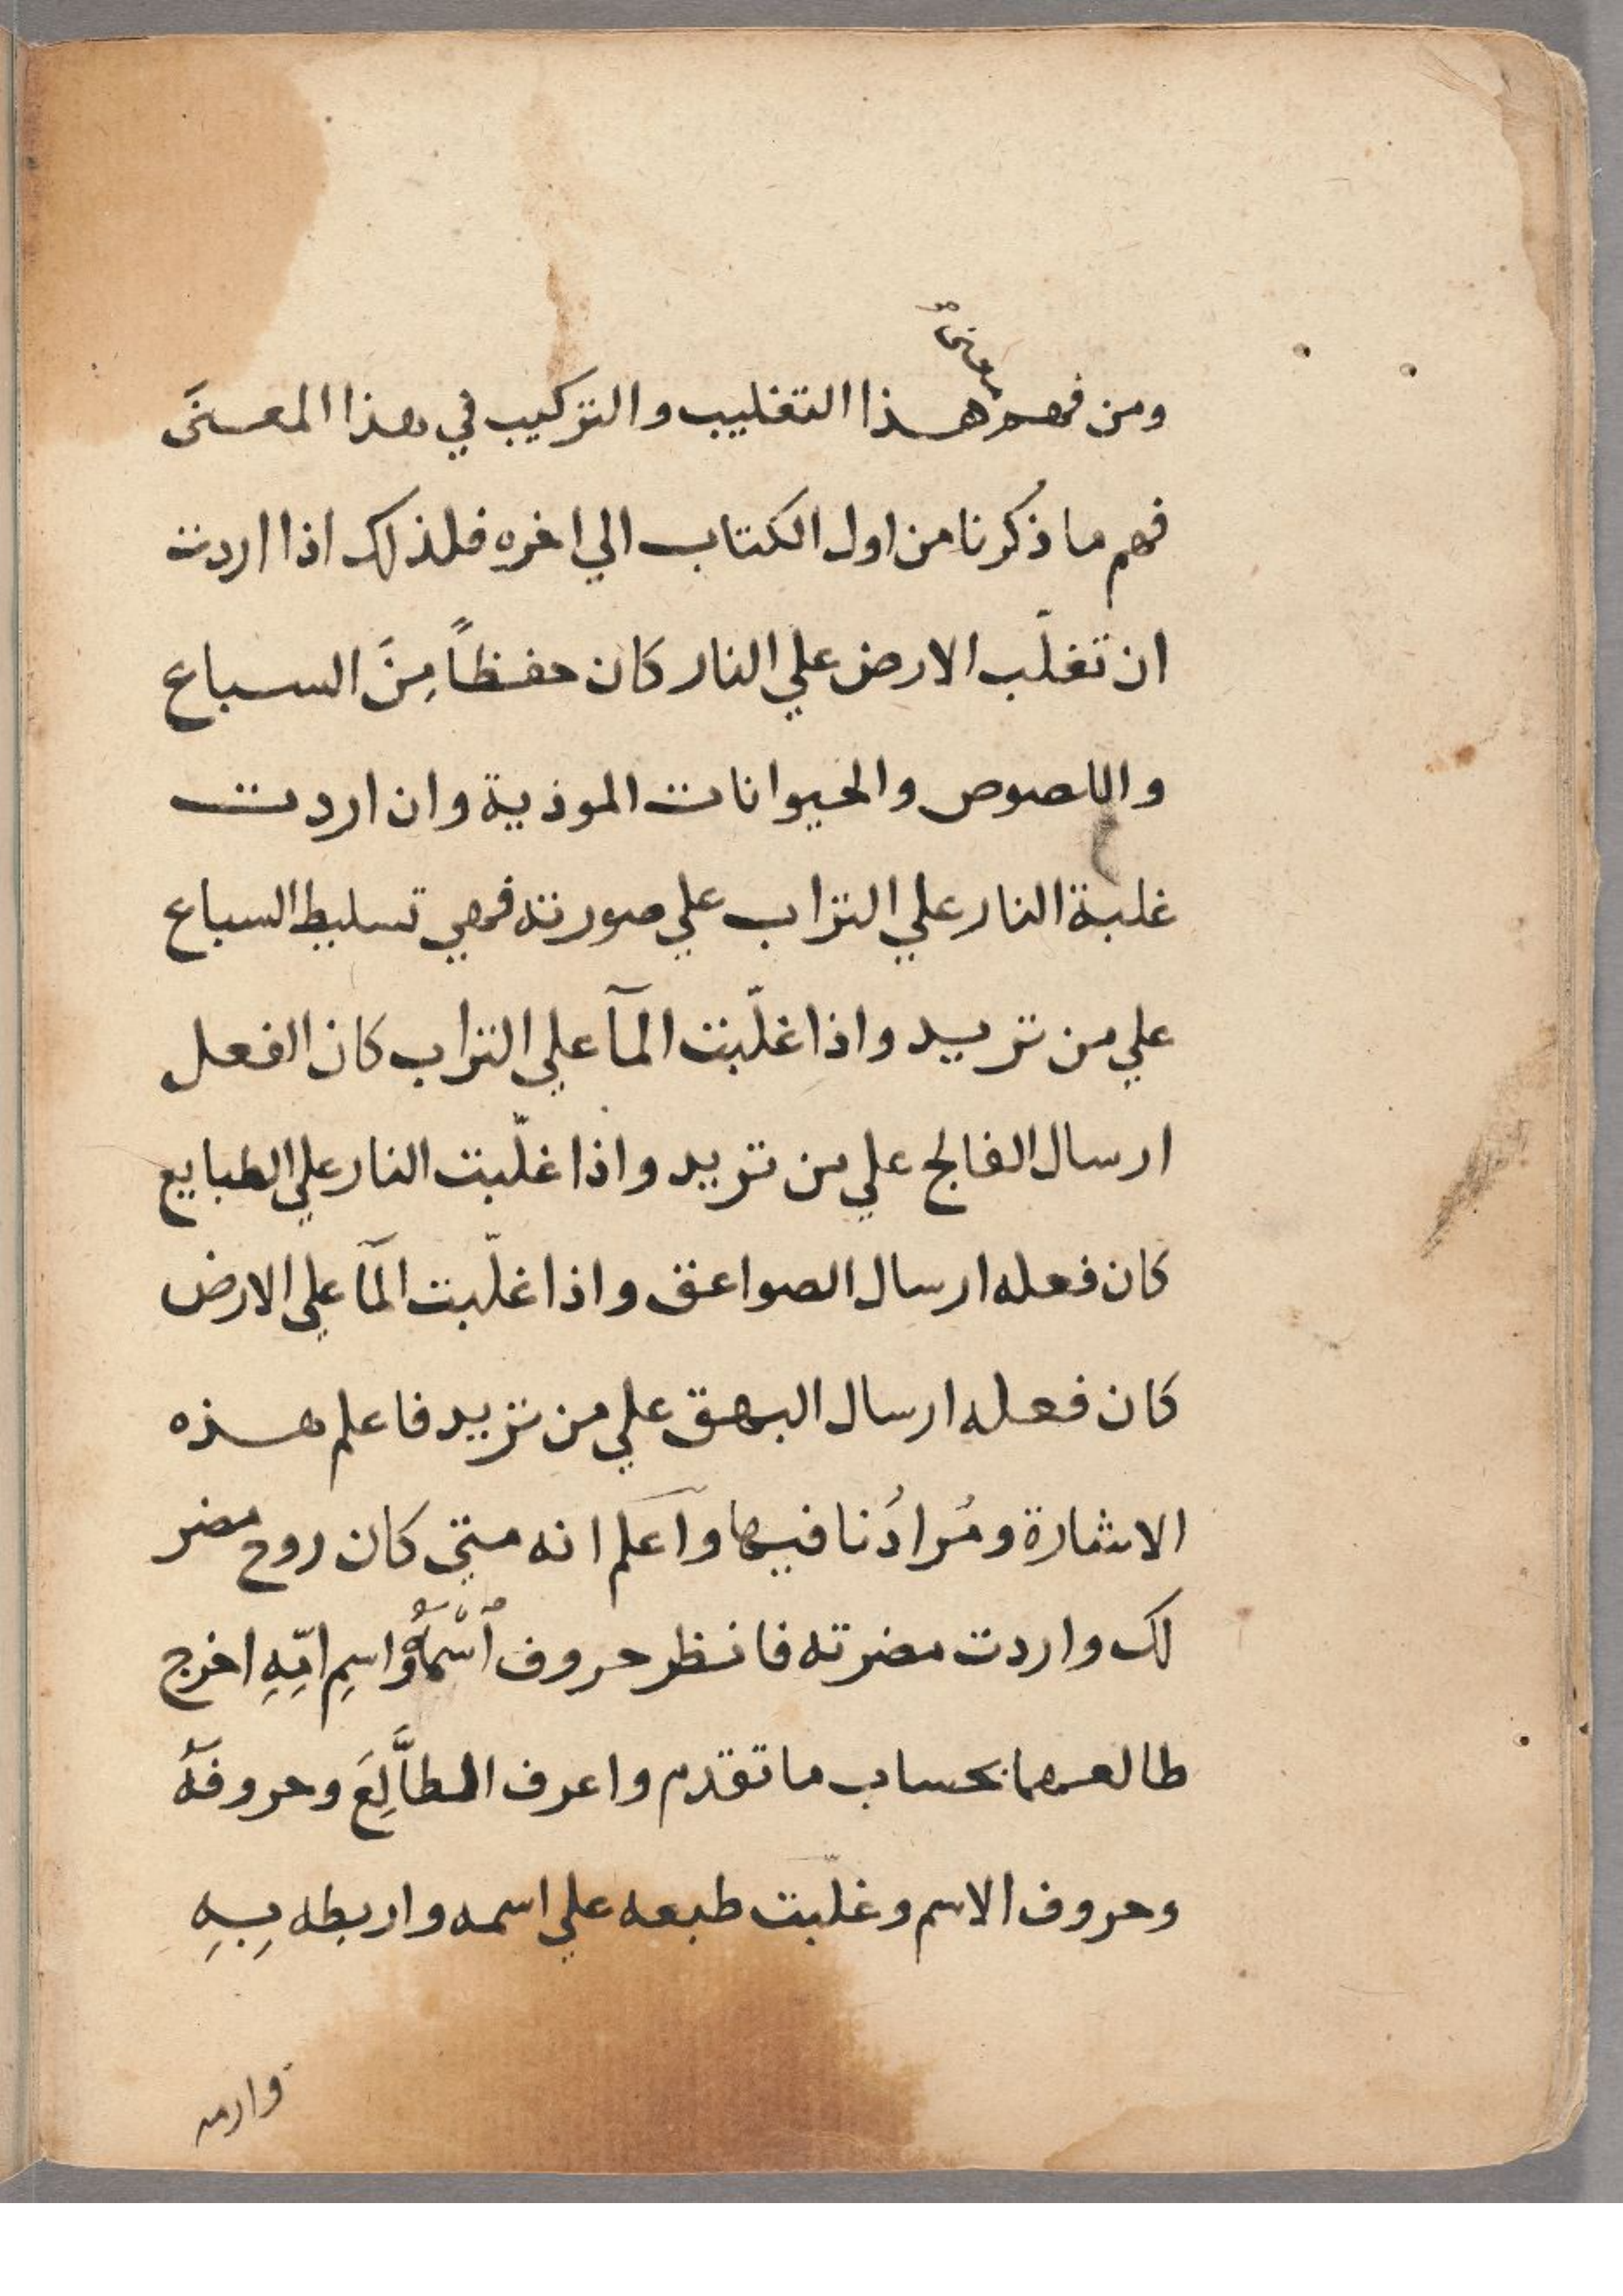 ومن فهم هذا التغليب والتركيب في هذا المعنَى
فهم ما ذُكرنا من اول الكتاب الي اخره فلذلك اذا اردت
ان تغلّب الارض علي النار كان حفظاً مِنَ السباع
واللصوص والحيوانات الموذية وان اردت
غلبة النار علي التراب علي صورته فهي تسليط السباع
علي من تريد واذا غلّبت المآ علي التراب كان الفعل
ارسال الفالج علي من تريد واذا غلّبت النار علي الطبايع
كان فعله ارسال الصواعق واذا غلّبت المآ علي الارض
كان فعله ارسال البهق علي من تريد فاعلم هذه
الاشارة ومُرادُنا فيها واعلم انه متي كان روح مضر
لك واردت مضرته فانظر حروف اسْمهُ واسمِ امِّهِ اخرج
طالعهما بحساب ما تقدم واعرف الطالِعَ وحروفَهُ
وحروف الاسم وغلّبت طبعه علي اسمه واربطه بِهِ